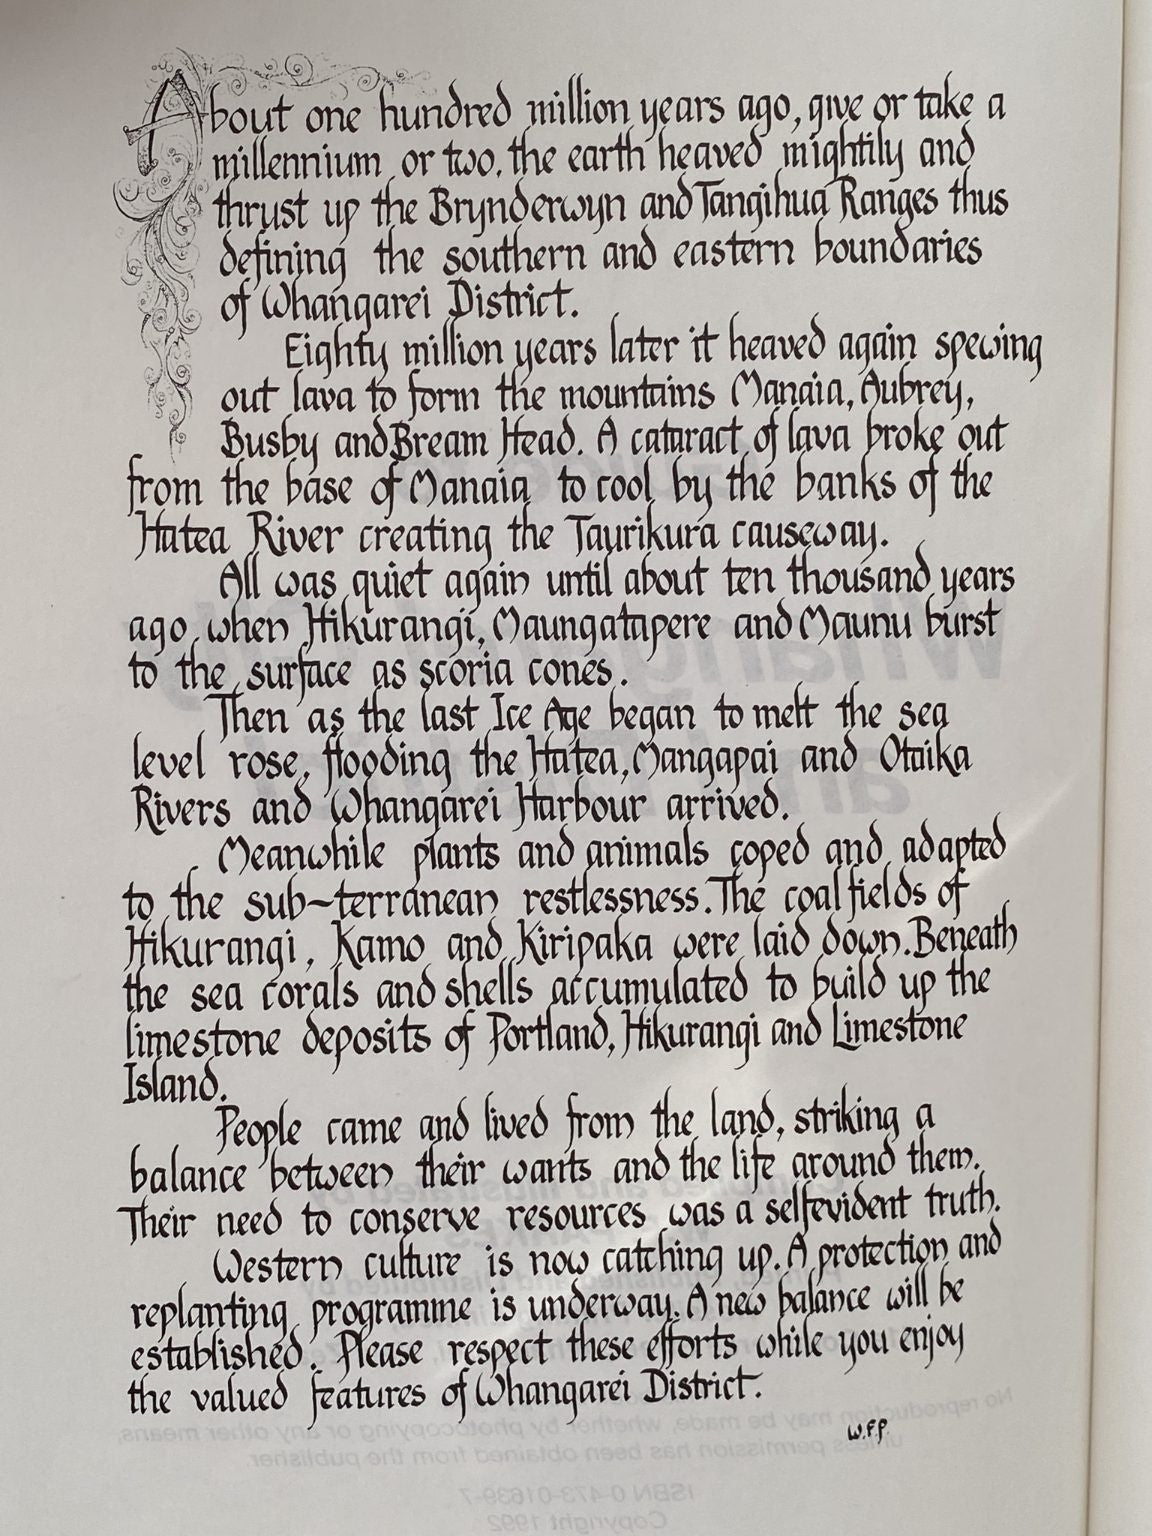 About one hundred million years ago, give or take a
millennium or two, the earth heaved mightily and
thrust up the Brynderwyn and Tangihua Ranges thus
defining the southern and eastern boundaries
of Whangarei District.
Eighty million years later it heaved again spewing
out lava to form the mountains Manaia, Aubrey,
Busby and Bream Head. A cataract of lava broke out
from the base of Manaia to cool by the banks of the
Hatea River creating the Taurikura causeway.
All was quiet again until about ten thousand years
ago, when Hikurangi, Maungatapere and Maunu burst
to the surface as scoria cones.
Then as the last Ice Age began to melt the sea
level rose, flooding the Hatea, Mangapai and Otaika
Rivers and Whangarei Harbour arrived.
Meanwhile plants and animals coped and adapted
to the sub-terranean restlessness. The coalfields of
Hikurangi, Kamo and Kiripaka were laid down. Beneath
the sea corals and shells accumulated to build up the
limestone deposits of Portland, Hikurangi and Limestone
Island.
People came and lived from the land, striking a
balance between their wants and the life around them.
Their need to conserve resources was a selfevident truth.
Western culture is now catching up. A protection and
replanting programme is underway. A new balance will be
established. Please respect these efforts while you enjoy
the valued features of Whangarei District.
W.F.P.
No reproduction may be made, whether by photocopying or any other means,
unless permission has been obtained from the publisher.
ISBN 0-473-01639-7
Copyright 1992